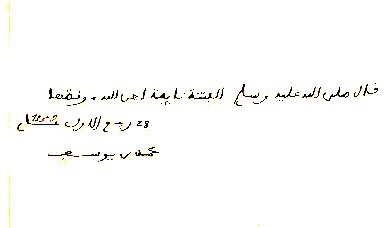 قال صلى الله عليه وسلم الفتنة نايمة لعن الله موقضها
28 ربيع الاول
محمد يوسف